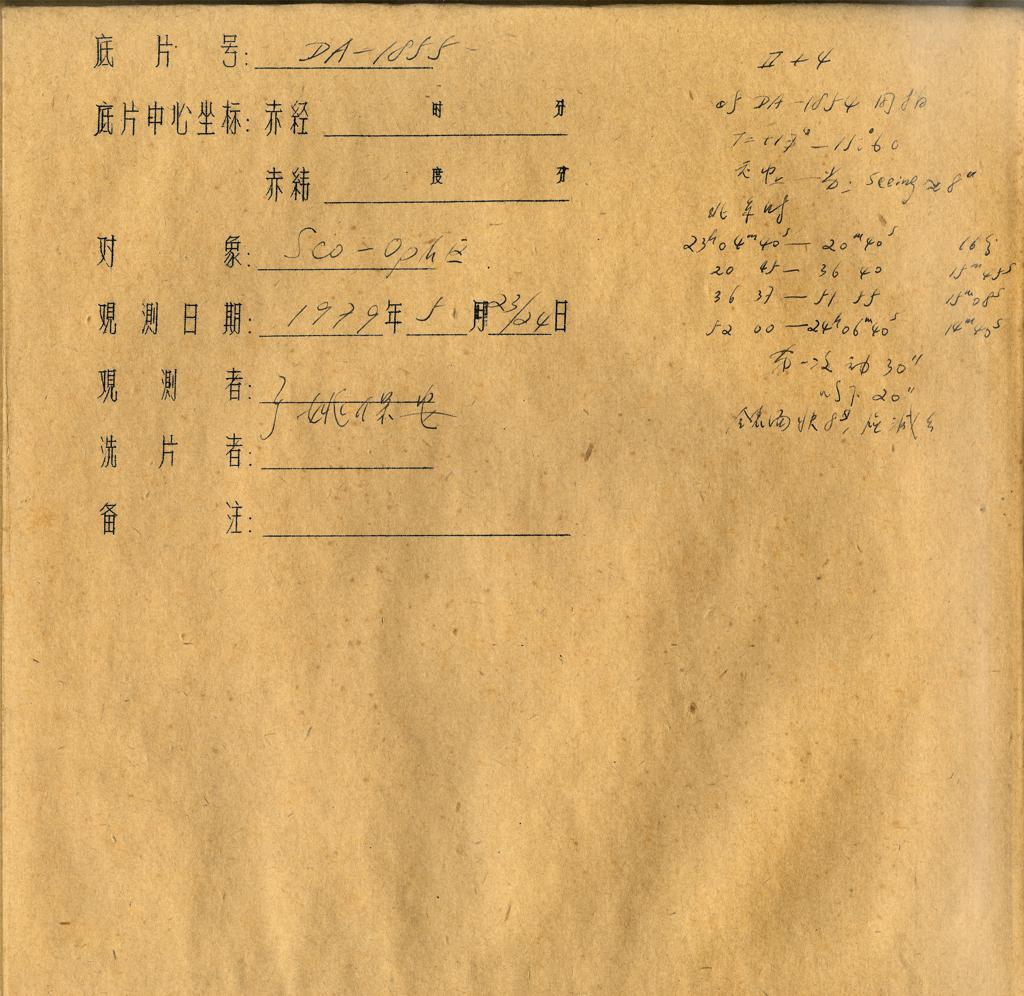 底片号: DA-1855
底片中心坐标: 赤经 时 分
赤纬 度 分
对象: Sco-Oph区
观测日期: 1979年5月23/24日
观测者: 姚保安
洗片者:
备注:
II+4
与DA-1854同拍
T=+17° — 15.°60
seeing≈8"
北京时
23ʰ04ᵐ40ˢ — 20ᵐ40ˢ 16分
20 45 — 36 40 15ᵐ45ˢ
36 37 — 51 55 15ᵐ08ˢ
52 00 — 24ʰ06ᵐ40ˢ 14ᵐ40ˢ
第一次动30"
以下20"
快8ˢ, 应减去